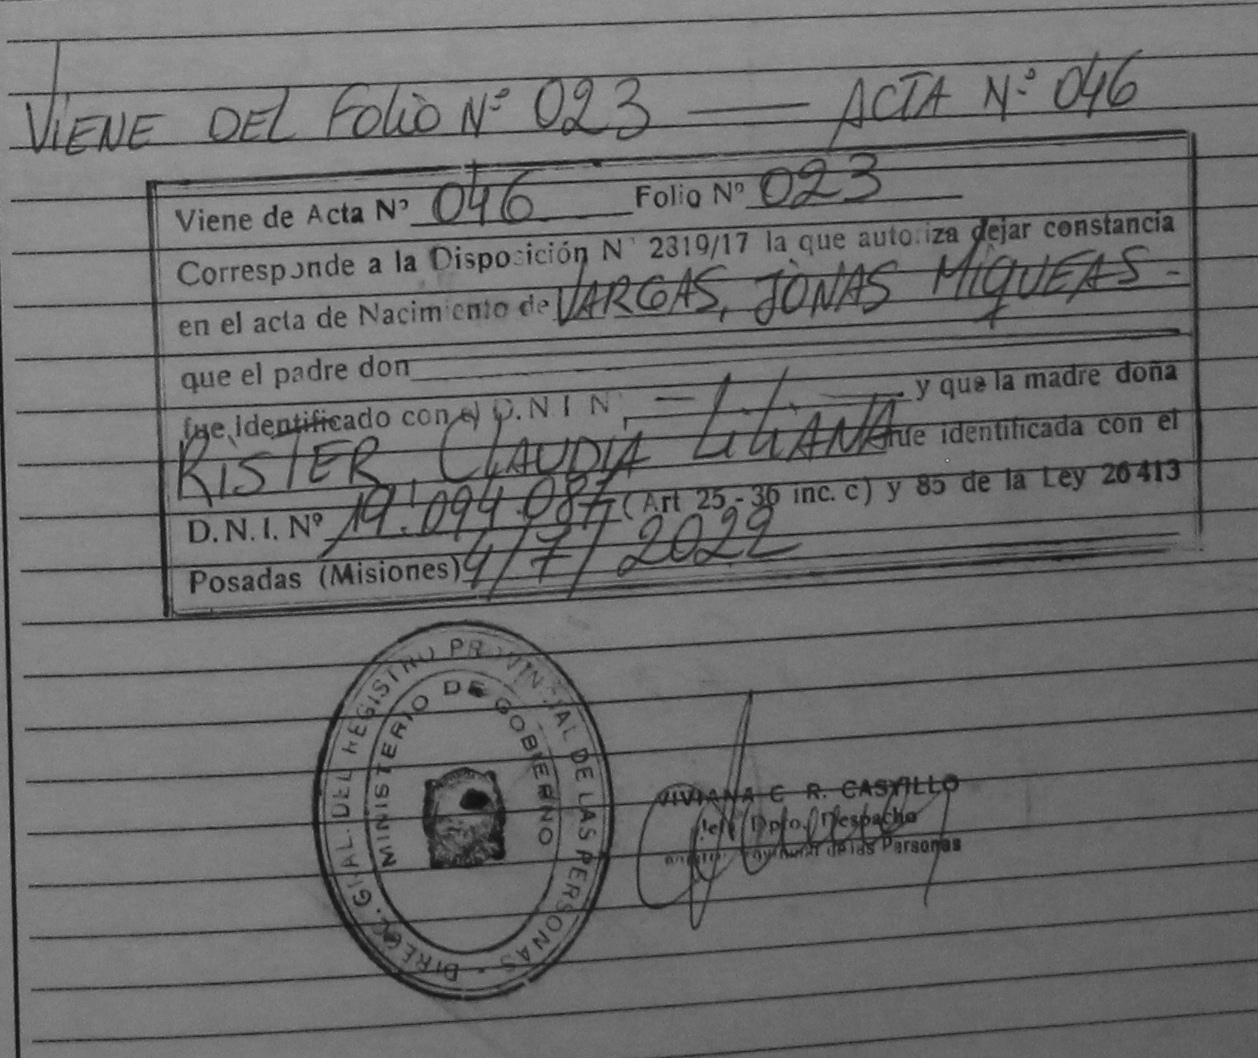 VIENE DEL FOLIO Nº 023 — ACTA Nº 046
Viene de Acta Nº 046 Folio Nº 023
Corresponde a la Disposición Nº 2319/17 la que autoriza dejar constancia
en el acta de Nacimiento de VARGAS, JONAS MIQUEAS -
que el padre don
fue identificado con el D.N.I Nº — y que la madre doña
RISTER, CLAUDIA LILIANA fue identificada con el
D.N.I. Nº 19.094.087 (Art 25 - 36 inc. c) y 85 de la Ley 26413
Posadas (Misiones) 4/7/2022
DIREC. GRAL. DEL REGISTRO PROVINCIAL DE LAS PERSONAS
MINISTERIO DE GOBIERNO
VIVIANA C R. CASTILLO
Jefe Dpto. Despacho
Provincial de las Personas